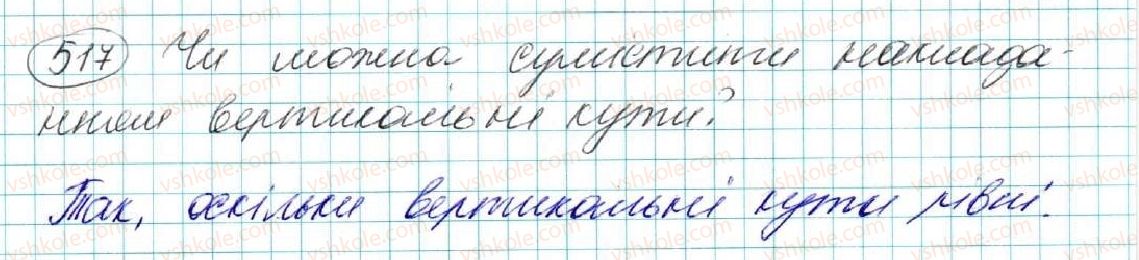 517 Чи можна сумістити наклада-
нням вертикальні кути?
Так, оскільки вертикальні кути рівні.